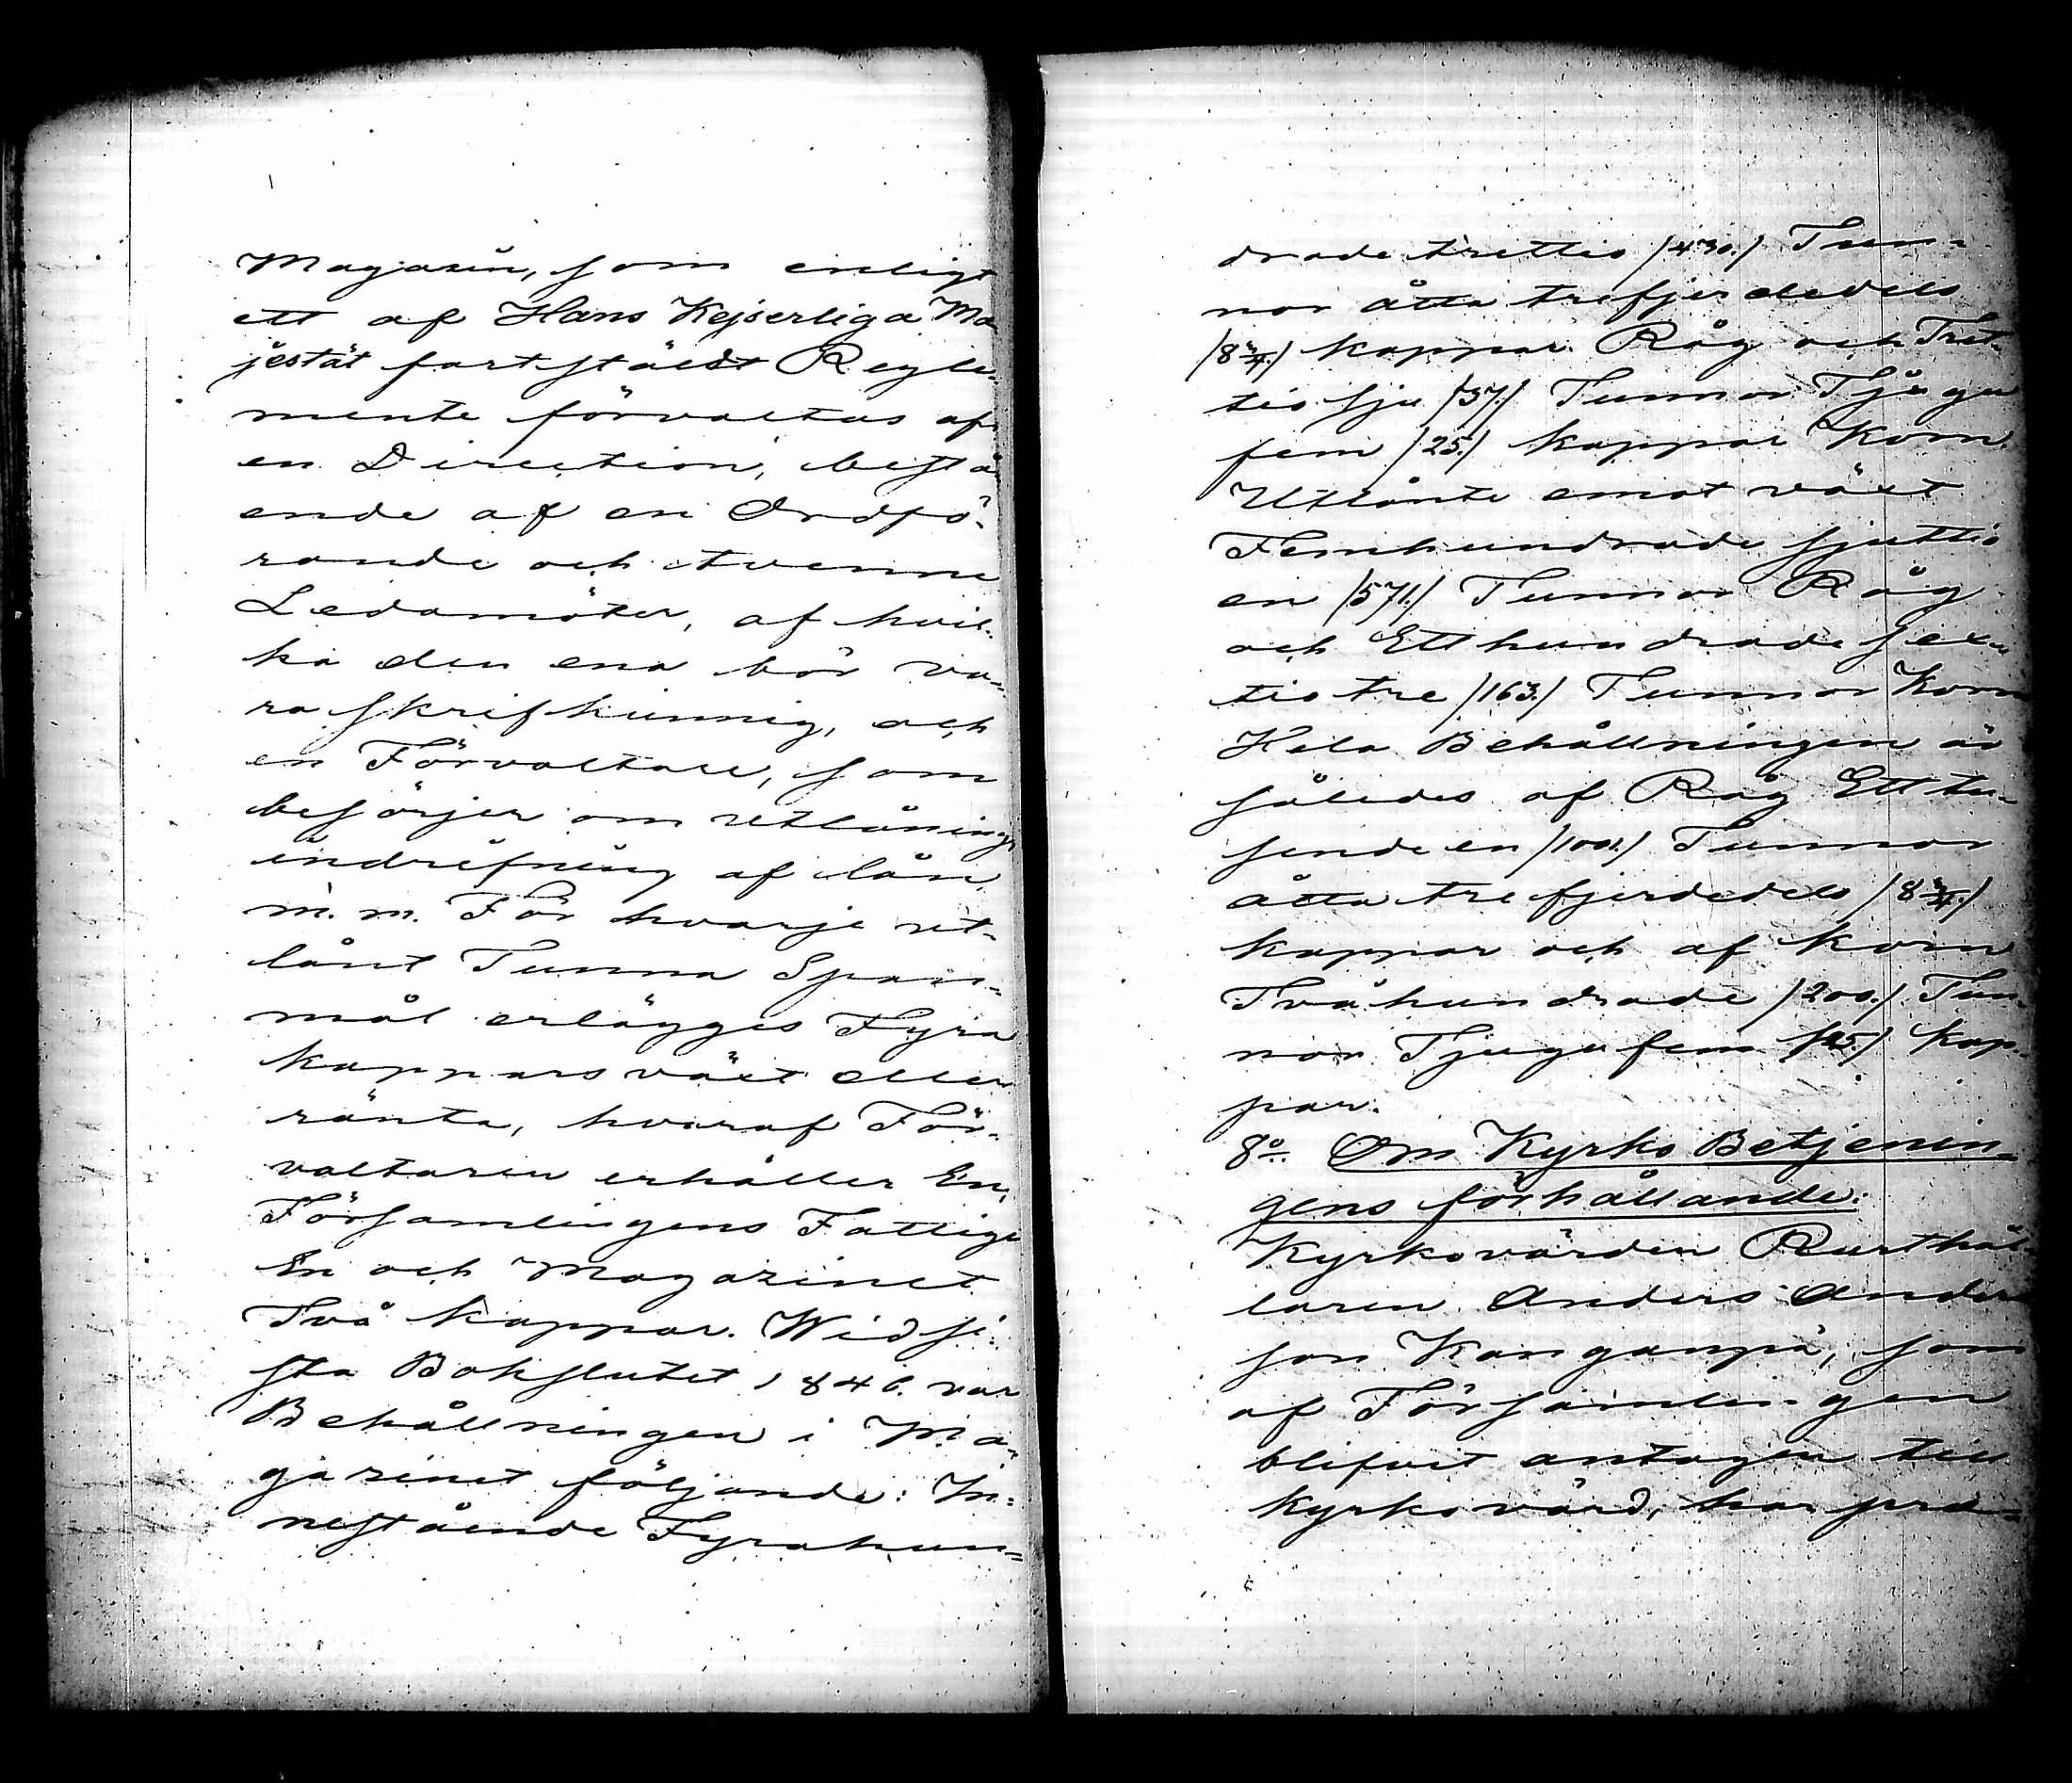 Magasin, som enligt
ett af Hans Kejserliga Ma
jestät fartstäldt Regle-
mente förvaltas af
en Direction, bestå
ende af en Ordfö-
rande och tvenne
Ledamöter, af hvil-
ka den ena bör va-
ra skrifkunnig, och
en Förvaltare, som
besörjer om utlåning,
indrifning af lån
m. m. För hvarje ut-
lånt Tunna Span-
mål erlägges Fyra
kappars växt eller
ränta, hvaraf För-
valtaren erhåller En,
Församlingens Fattige
En och Magazinet
Två kappar. Wid si-
sta Bokslutet 1846. var
Behållningen i Ma-
gazinet följande: In-
nestående Fyrahun-
drade trettio /430./ Tun-
nor åtta trefjerdedels
/8 3/4./ kappar Råg och Tret-
tio sju /37./ Tunnor Tjugu
fem /25./ kappar Korn.
Utlånte emot växt
Femhundrade sjuttio
en /571./ Tunnor Råg
och Ett hundrade sex-
tio tre /163./ Tunnor Korn
Hela Behållningen är
således af Råg Ett tu-
sende en /1001./ Tunnor
åtta tre fjerdedels /8 3/4./
kappar och af korn
Tvåhundrade /200./ Tun-
nor Tjugu fem /25./ kap-
par.
8o. Om Kyrko Betjenin-
gens förhållande:
Kyrkovärden Rusthål-
laren Anders Anders
son Kanganpä, som
af Församlingen
blifvit antagen till
kyrkovärd, har prä-